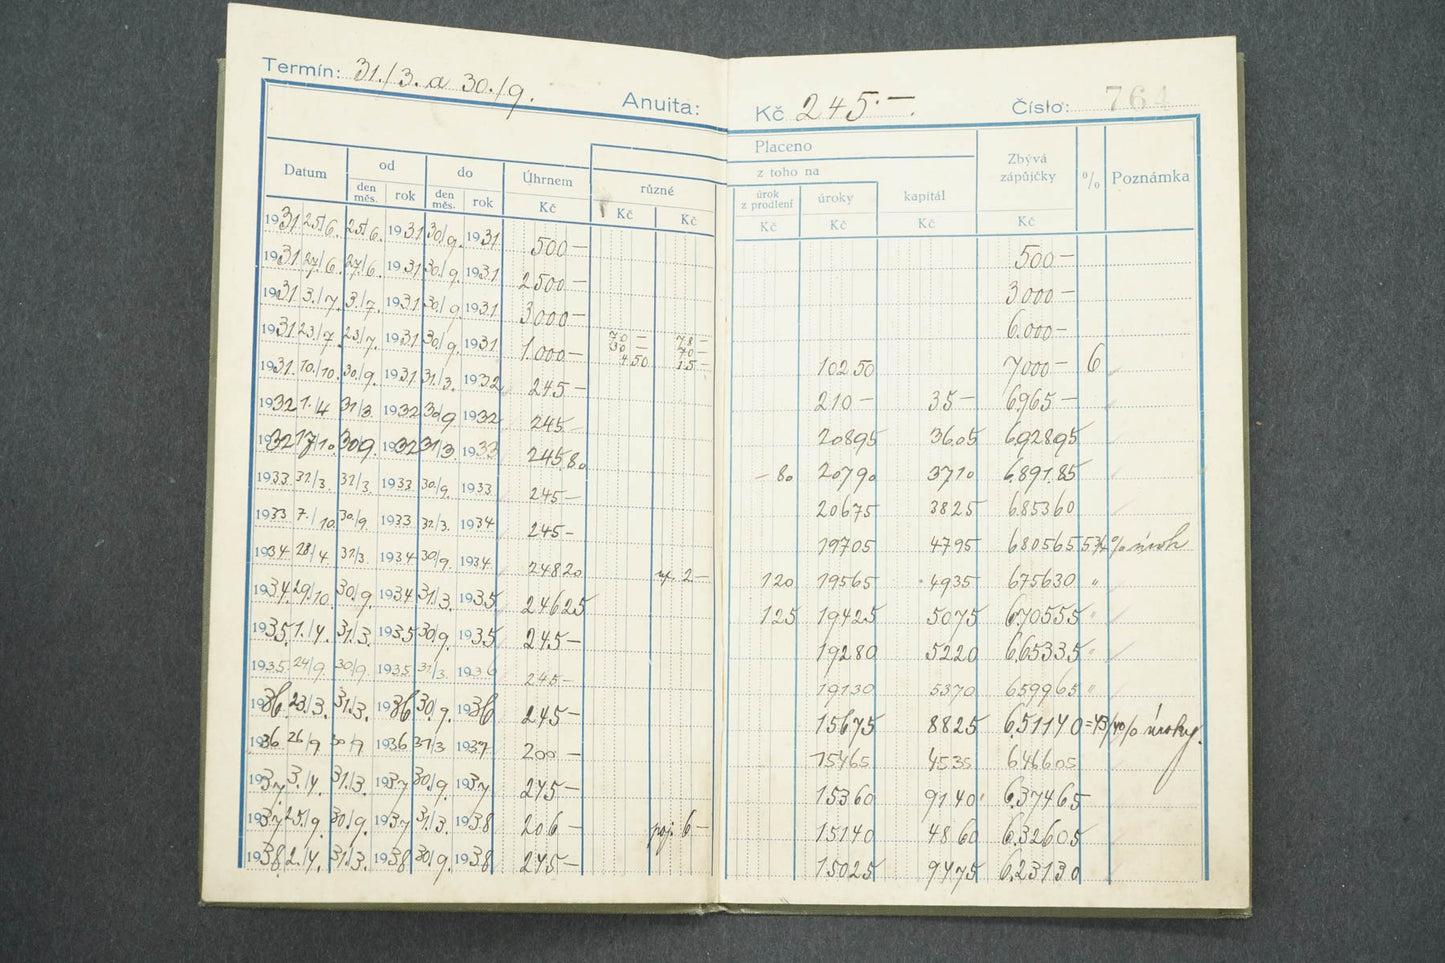 Termín: 31./3. a 30./9. Anuita: Kč 245.— Číslo: 764
Placeno
Datum od do Úhrnem různé z toho na Zbývá zápůjčky % Poznámka
den měs. rok den měs. rok úrok z prodlení úroky kapitál
Kč Kč Kč Kč Kč Kč Kč
1931 25/6. 25/6. 1931 30/9. 1931 500— 500—
1931 27/6. 27/6. 1931 30/9. 1931 2500— 3000—
1931 3./7. 3./7. 1931 30/9. 1931 3000— 6.000—
1931 23/7. 23/7. 1931 30/9. 1931 1.000— 70— 78— 102 50 7000— 6
30— 70—
4.50 15—
1931. 10./10. 30/9. 1931 31./3. 1932 245— 210— 35— 6.965—
1932 1./4 31/3. 1932 30/9 1932 245— 208 95 36.05 6.928 95
1932 17/10. 30/9. 1932 31/3. 1933 245 80 —80 207 90 37 10 6.891.85
1933. 31/3. 31/3. 1933. 30/9. 1933 245— 206 75 38 25 6.853 60
1933 7./10. 30/9. 1933 31/3. 1934 245— 197 05 47 95 6.805 65 5 3/4 % úrok
1934 28/4. 31/3. 1934 30/9. 1934. 248 20 up. 2— 1 20 195 65 49 35 6.756 30 "
1934. 29/10. 30/9. 1934 31/3. 1935 246 25 1 25 194 25 50 75 6.705 55 "
1935. 1./4. 31./3. 1935 30/9. 1935 245— 192 80 52 20 6.653 35 "
1935. 24/9. 30/9. 1935. 31/3. 1936 245— 191 30 53 70 6.599 65 "
1936 23./3. 31./3. 1936 30./9. 1936 245— 156 75 88 25 6.511 40 = úroky.
1936. 26/9 30/9 1936 31/3 1937. 200— 154 65 45 35 6.466 05
1937 3./4. 31./3. 1937 30/9. 1937 245— 153 60 91 40 6.374 65
1937 25./9. 30./9. 1937 31/3. 1938 206— poj. 6— 151 40 48 60 6.326 05
1938 2./4. 31./3. 1938 30/9. 1938 245— 150 25 94 75 6.231 30